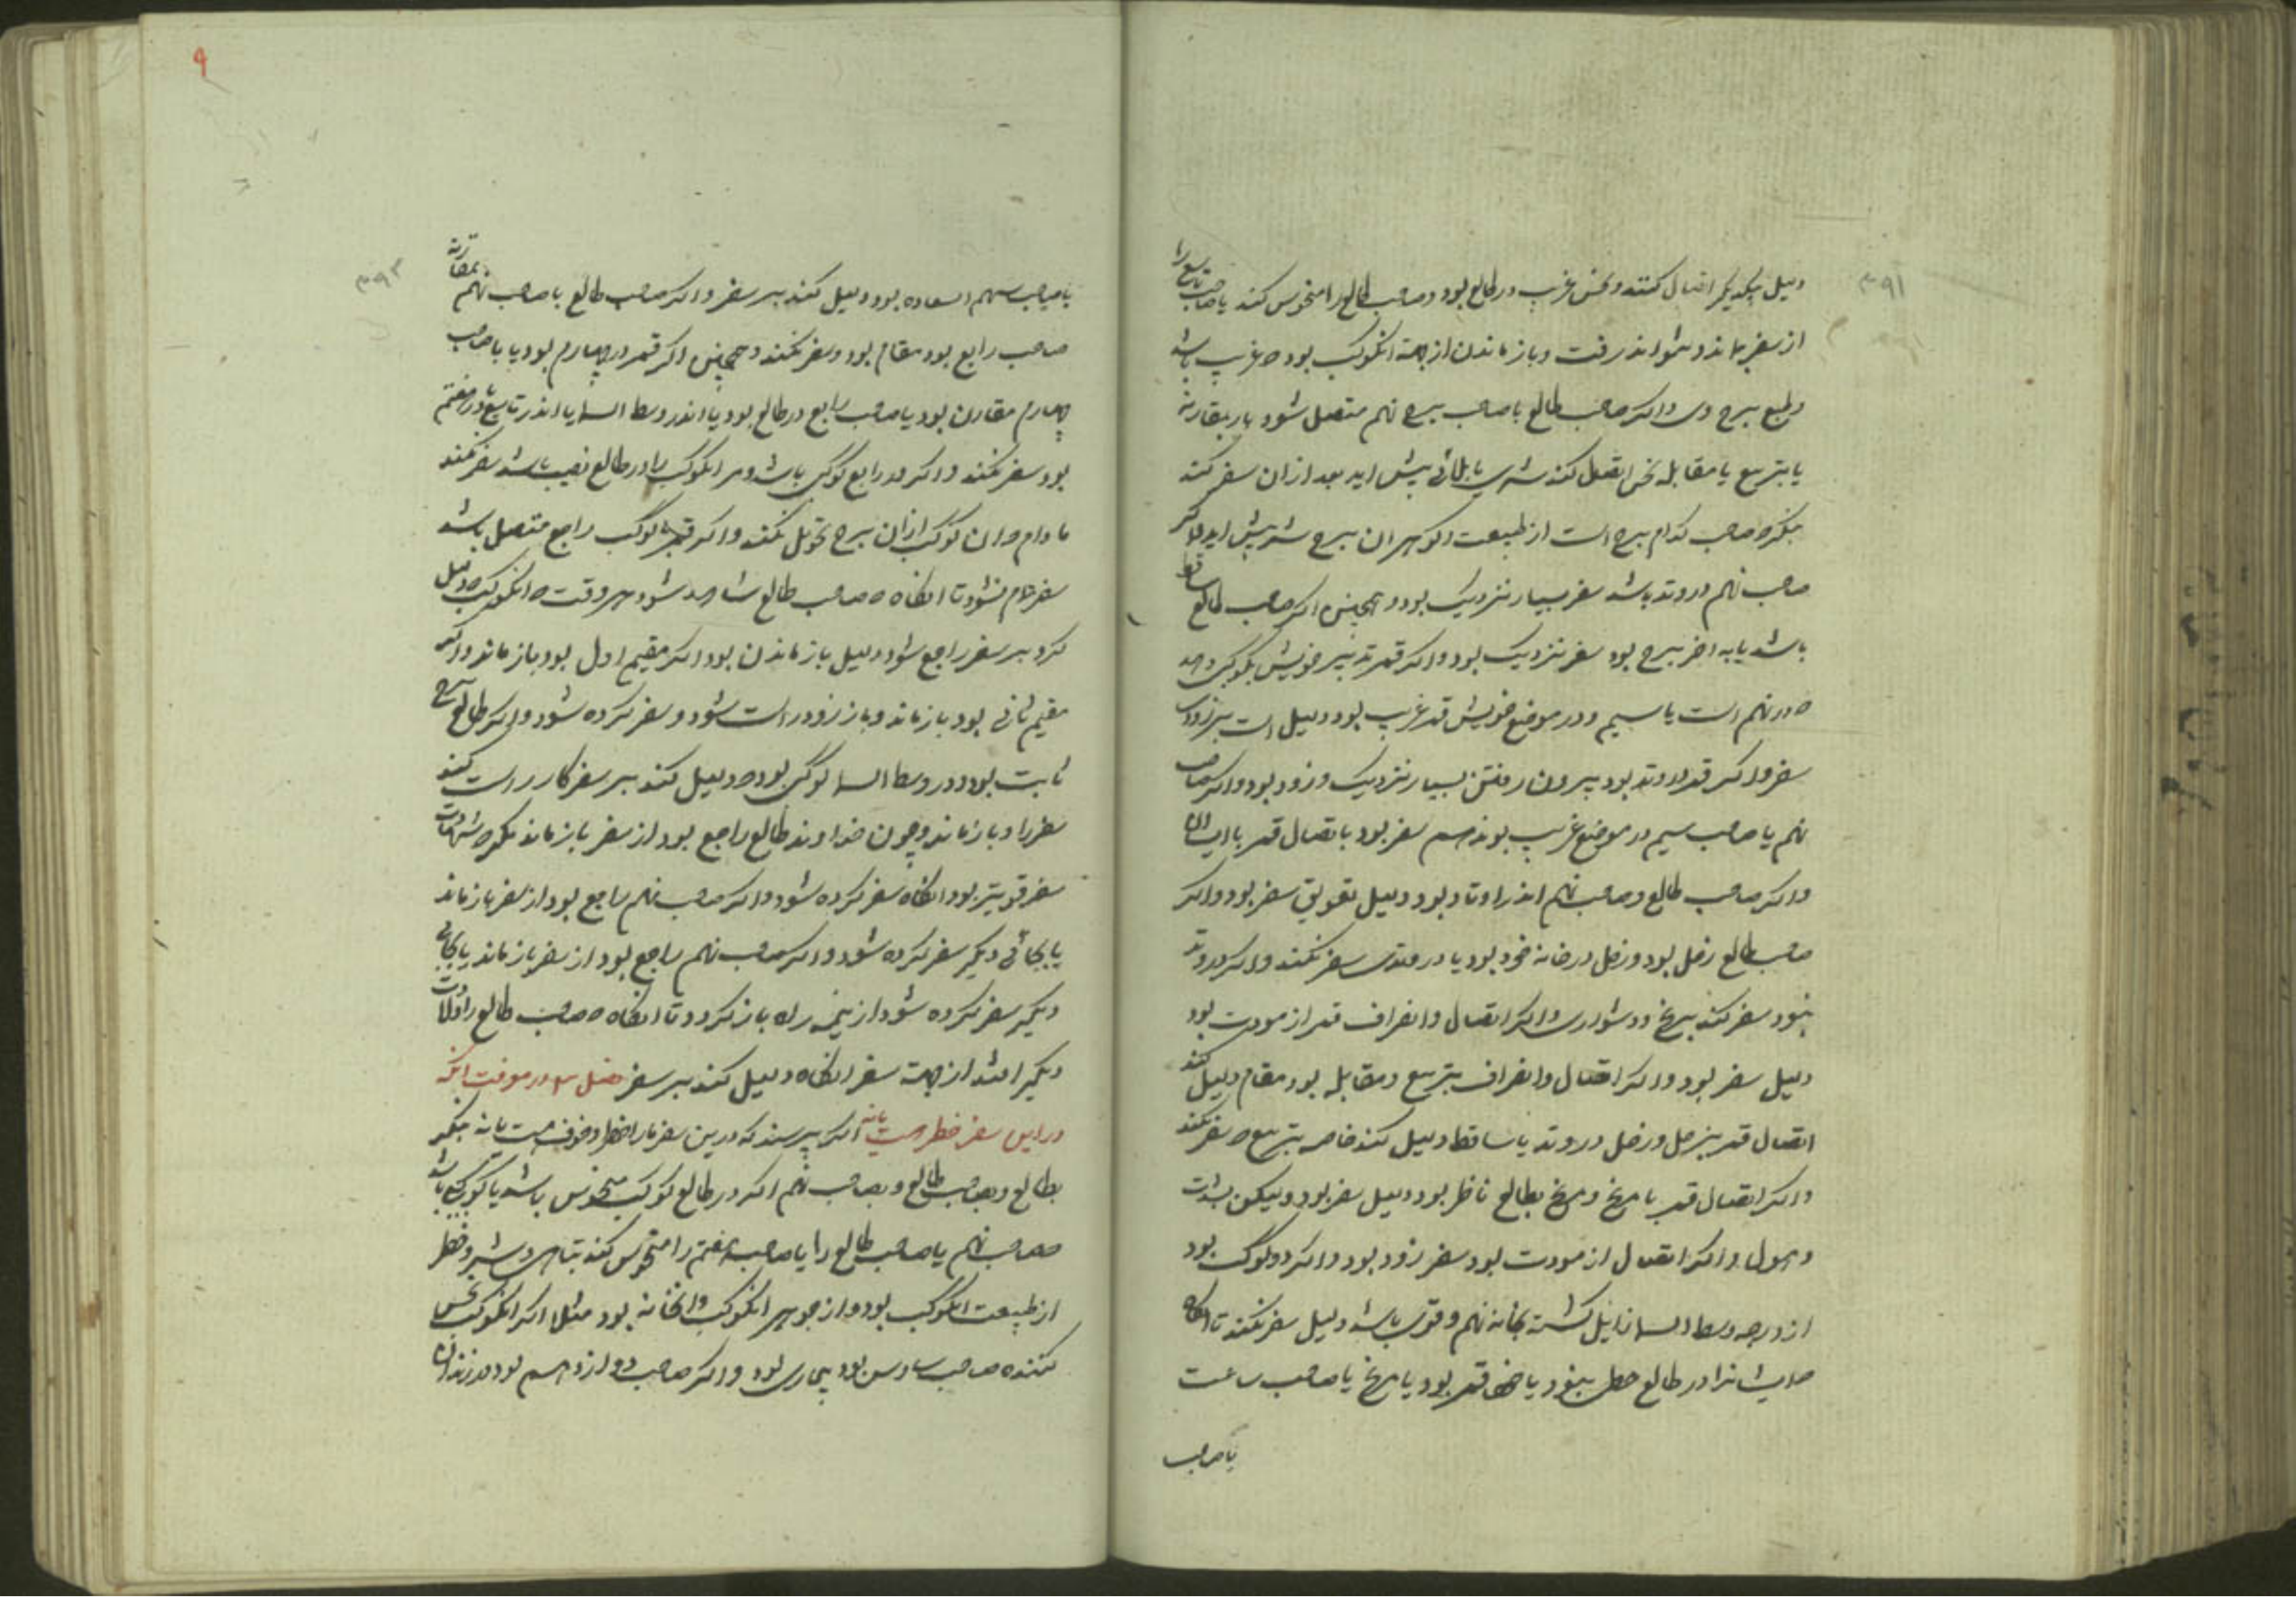 ۳۹۱
دلیل بیکدیگر اتصال کنند و نحس غریب در طالع بود و صاحب طالع را منحوس کند یا صاحب تاسع را
از سفر بماند و نتواند رفت و باز ماندن از جهة انکوکب بود و غریب باشد
و طبع برج وی و اکر صاحب طالع با صاحب برج نهم متصل شود بار بمقارنه
یا بتربیع یا مقابله نحس اتصال کند شری یا بلائی پیش اید بعد ازان سفر کند
بنکر صاحب کدام برج است از طبیعت و کوهر ان برج شر پیش اید و اکر
صاحب نهم در وتد باشد سفر بسیار نزدیک بود و همچنین اکر صاحب طالع ساقط
باشد یا به اخر برج بود سفر نزدیک بود و اکر قمر تدبیر خویش بکوکبی دهد
در نهم است یا سیم و در موضع خویش قمر غریب بود دلیل است بر زودی
سفر و اکر قمر در وتد بود بیرون رفتن بسیار نزدیک و زود بود و اکر صاحب
نهم یا صاحب سیم در موضع غریب بوند هم سفر بود باتصال قمر با ایشان
و اکر صاحب طالع و صاحب نهم اندر اوتاد بود دلیل تعویق سفر بود و اکر
صاحب طالع زحل بود و زحل در خانه خود بود یا در وتدی سفر نکند و اکر در وتد
نبود سفر کند برنج و دشواری و اکر اتصال و انصراف قمر از مودت بود
دلیل سفر بود و اکر اتصال و انصراف بتربیع و مقابله بود مقام دلیل کند
اتصال قمر بزحل و زحل در وتد یا ساقط دلیل کند خاصه بتربیع سفر نکند
و اکر اتصال قمر با مریخ و مریخ بطالع ناظر بود دلیل سفر بود و لیکن بشدت
و هول و اکر اتصال از مودت بود سفر زود بود و اکر دو کوکب بود
از درجه وسط السما زایل کشته بخانه نهم و قوی باشد دلیل سفر نکند تا انکاه
ایشانرا در طالع حظی نبود یا قمر بود یا مریخ یا صاحب ساعت
یا صاحب
۹
۳۹۲
یا صاحب سهم السعاده بود دلیل کند بر سفر و اکر صاحب طالع با صاحب نهم بمقارنه
صاحب رابع بود مقام بود و سفر نکند و همچنین اکر قمر در چهارم بود یا با صاحب
چهارم مقارن بود یا صاحب رابع در طالع بود یا اندر وسط السما یا اندر تاسع یا در هفتم
بود سفر نکند و اکر در رابع کوکبی باشد و مر انکوکب را در طالع نصیب باشد سفر نکند
مادام ان کوکب ازان برج تحویل نکند و اکر قمر با کوکب راجع متصل باشد
سفر تمام نشود تا انکاه صاحب طالع شاهد شود هر وقت انکوکب دلیل
کرد بر سفر راجع شود دلیل باز ماندن بود اکر مقیم اول بود باز ماند و اکر
مقیم ثانی بود باز ماند و باز زود راست شود و سفر کرده شود و اکر طالع برج
ثابت بود و در وسط السما کوکبی بود دلیل کند بر سفر کار راست کند
سفر را و باز ماند و چون خداوند طالع راجع بود از سفر باز ماند مکر شهادت
سفر قویتر بود انکاه سفر کرده شود و اکر صاحب نهم راجع بود از سفر باز ماند
یا بجائی دیکر سفر کرده شود و اکر صاحب نهم راجع بود از سفر باز ماند یا بجائی
دیکر سفر کرده شود از نیمه راه باز کردد تا انکاه صاحب طالع را ولادت
دیکر افتد از جهة سفر انکاه دلیل کند بر سفر فصل ۳ در معرفت انکه
در این سفر خطر هست یا نه اکر پرسند که درین سفر مارا خطر و خوف هست یا نه بنکر
بطالع و بصاحب طالع و بصاحب نهم اکر در طالع کوکب منحوس باشد یا کوکبی باشد
صاحب نهم یا صاحب طالع را یا صاحب هفتم را منحوس کند تباهی و شر و خطر
از طبیعت انکوکب بود و از جوهر انکوکب و انخانه بود مثلا اکر انکوکب نحس
کننده صاحب سادس بود بیماری بود و اکر صاحب دوازدهم بود در زندان